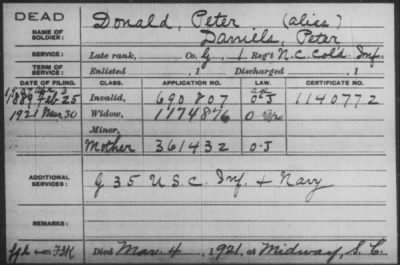 DEAD
NAME OF SOLDIER: Donald, Peter (alias)
Daniels, Peter
SERVICE: Late rank, Co. G, 1 Reg't N.C. Cold Inf.
TERM OF SERVICE: Enlisted , 1 Discharged , 1
DATE OF FILING. CLASS. APPLICATION NO. LAW. CERTIFICATE NO.
1889 Feb 25 Invalid, 690807 1140772
1921 Mar 30 Widow, 1174876
Minor,
Mother 361432 O-J
ADDITIONAL SERVICES: G 35 U.S.C. Inf. + Navy
REMARKS:
Died Mar 4, 1921, at Midway, S.C.